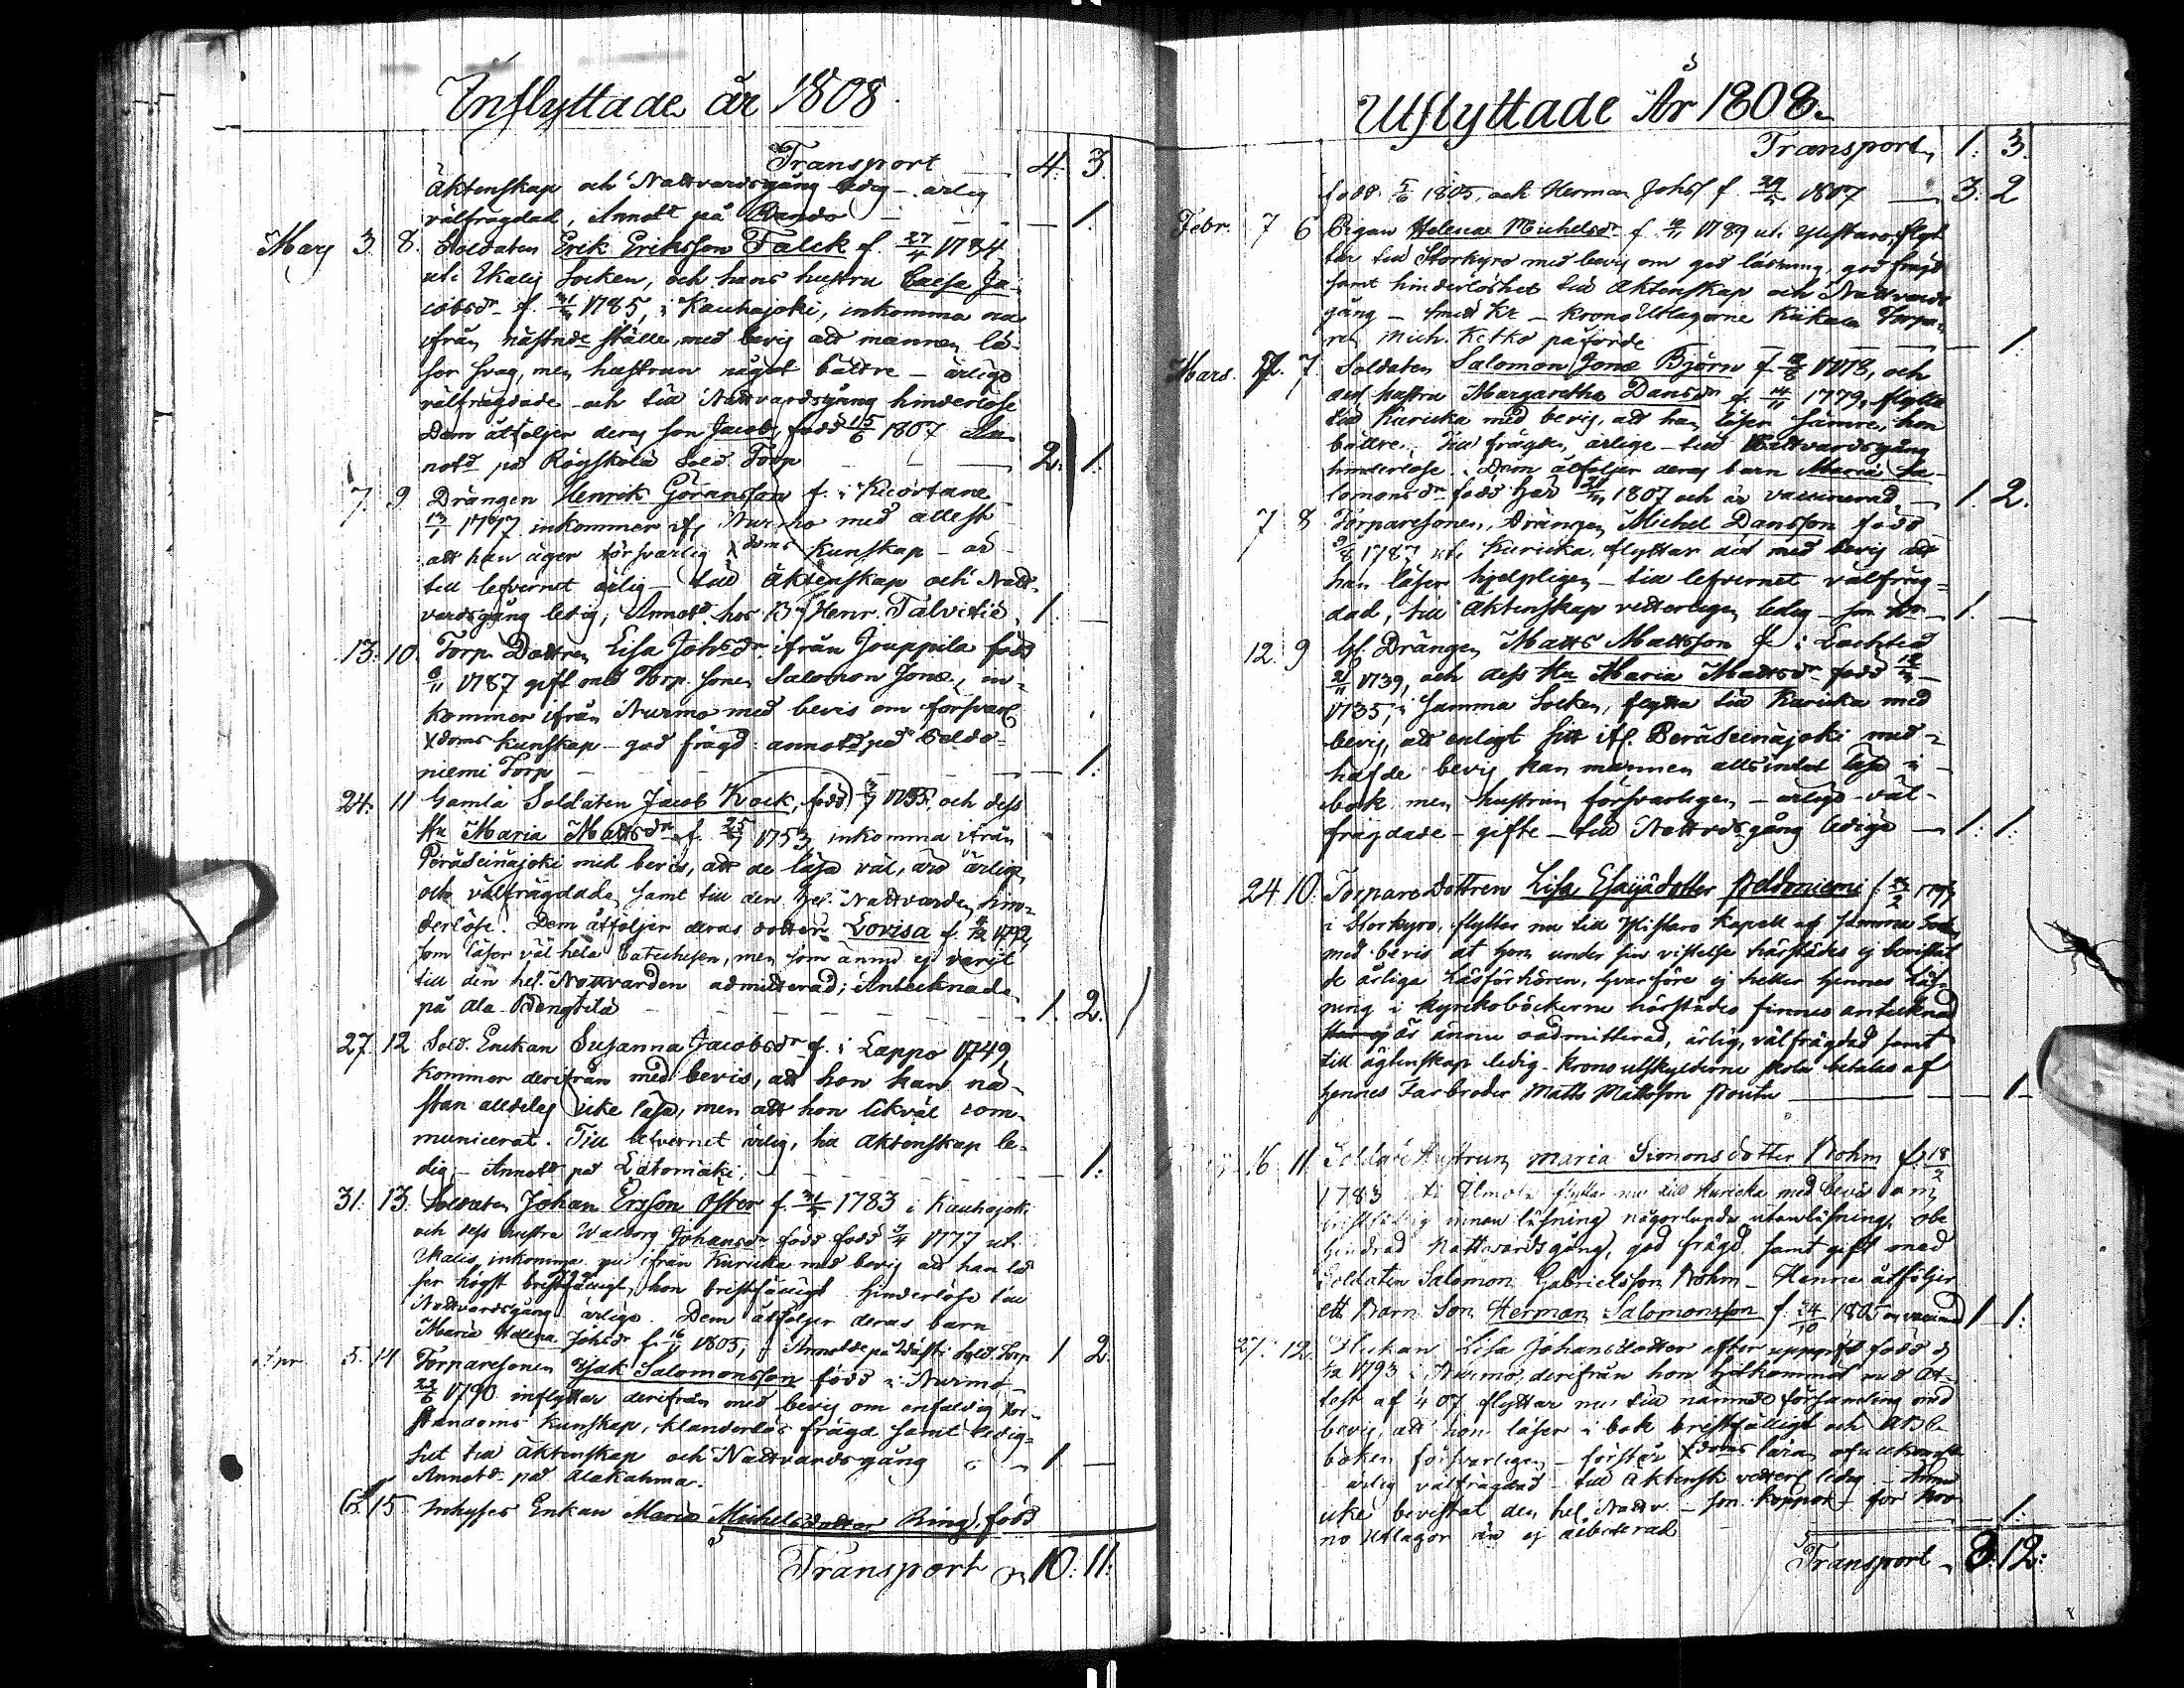 Inflyttade år 1808
Transport 4. 3.
Äktenskap och Nattvardsgång ledig - ärlig
välfrägdad, Annott på Rando 1.
Mars 3 8. Soldaten Erik Eriksson Falck f. 27/4 1784
uti Ikalis Socken, och hans hustru Caisa Ja-
cobsdr f. 1785, i Kauhajoki, inkomma nu
ifrån nästnde ställe, med bevis att mannen lä-
ser svag, men hustrun något bättre - ärlige
välfrägdade - och till Nattvardsgång hinderlöse
Dem åtföljer deras son Jacob, född 15/6 1807 An-
notd på Röyskola Sold. Torp 2. 1.
7. 9 Drängen Henrik Göransson f. i Kuortane
1777 inkommer ifr. Nurmo med attest
att han äger försvarlig Xdoms kunskap - är
till lefvernet ärlig - till Äktenskap och Natt-
vardsgång ledig; Annotd. hos Bn Henr. Talvitie. 1.
13. 10. Torp. Dottren Lisa Johsdr. ifrån Jouppila född
6/11 1787 gift med Torp. sonen Salomon Jonæ, in-
kommer ifrån Nurmo med bevis om försvarl
Xdoms kunskap - god frägd: annotd på Peldo-
niemi Torp 1.
24. 11 Gamla Soldaten Jacob Kock, född 1755, och dess
Hu Maria Mattsdr f. 1753, inkomma ifrån
Peräseinäjoki med bevis, att de läsa väl, äro ärlige
och välfrägdade samt till den hel. Nattvarden hin-
derlöse. Dem åtföljer deras dotter Lovisa f. 1792,
som läser väl hela Catechesen, men som ännu ej varit
till den hel. Nattvarden admitterad; Antecknade
på Ala Rengbila 1. 2.
27. 12 Sold. Enckan Susanna Jacobsdr f. i Lappo 1749,
kommer derifrån med bevis, att hon kan nä-
stan alldeles icke läsa, men att hon likväl com-
municerat. Till lefvernet ärlig, till Äktenskap le-
dig - Annotd på Latomäki 1.
31. 13. Soldaten Johan Ersson Öster f. 1783 i Kauhajoki
och dess hustru Walborg Johansdr född 1777 uti
Ikalis, inkomma nu ifrån Kuricka med bevis att han lä
ser högst bristfälligt, hon bristfälligt Hinderlöse till
Nattvardsgång ärlige. Dem åtföljer deras barn
Maria Helena Johsdr f. 16/11 1805; Annotde på Wästi Sold. Torp 1 2.
Apr. 5. 14 Torparesonen Isak Salomonsson född i Nurmo
23/6 1790 inflyttar derifrån med bevis om enfaldig
kunskap, klanderlös frägd samt ledig-
het till Äktenskap och Nattvardsgång 1
Annotd på Alakahma.
6. 15 Inhyses Enkan Maria Michelsdotter Ring, född
Transport 10. 11.
Utflyttade År 1808.
Transport 1. 3.
född 5/6 1805, och Herman Johss f. 1807 3. 2
Febr. 7 6 Pigan Helena Michelsdr f. 1789 uti Ylistaro, flyt
tar till Storkyro med bevis om god läsning, god frägd
samt hinderlöshet till Äktenskap och Nattvards
gång - Krono Utlagorne Kukola Torpa-
ren Mich. Ketko påförde 1.
Mars. 7. Soldaten Salomon Jonæ Björn f. 1778, och
dess hustru Margaretha Dansdr f. 14/11 1779, flytta
till Kuricka med bevis, att han läser sämre, hon
bättre. Till frägden ärlige - till Nattvardsgång
hinderlöse. Dem åtföljer deras barn Maria Sa-
lomonsdr född här 1807 och är vaccinerad 1. 2.
7 8 Torparesonen, Drängen Michel Dansson född
9/8 1787 uti Kuricka, flyttar dit med bevis att
han läser hjelpligen - till lefvernet välfräg-
dad, till Äktenskap vetterligen ledig 1.
12. 9 Gl. Drängen Matts Mattsson f. i
1739, och dess Hu Maria Mattsdr född
1735, i samma Socken, flytta till Kuricka med
bevis, att enligt sitt ifr. Peräseinäjoki med-
hafde bevis kan mannen allsintet läsa i
bok men hustrun försvarligen - ärlige - väl-
frägdade - gifte - till Nattvdsgång ledige 1. 1.
24 10. Torparedottren Lisa Esaijædotter Peldoniemi f.
i Storkyro, flyttar nu till Ylistaro Kapell af samma Sockn
med bevis at hon under sin vistelse härstädes ej bevistat
de årliga Läsförhören, hvarföre ej heller hennes läs-
ning i Kyrkoböckerne härstädes finnes antecknad
är ännu oadmitterad, ärlig, välfrägdad samt
till ägtenskap ledig. Kronoutskylderne skola betalas af
hennes Farbroder Matts Mattsson Routu 1
16 11 Soldatehustrun Maria Simonsdotter Bohm f. 18/2
1783 uti Ilmola flyttar nu till Kuricka med bevis om
bristfällig innan läsning någorlunda utanläsning, obe
hindrad Nattvardsgång, god frägd samt gift med
Soldaten Salomon Gabrielsson Bohm - Henne åtföljer
ett Barn Son Herman Salomonsson f. 24/10 1805 1 1.
27. 12. Flickan Lisa Johansdotter efter uppgift född
1793 i Nurmo, derifrån hon hitkommit med At-
test af 1807 flyttar nu till nämnde församling med
bevis, att hon läser i bok bristfälligt och ABC-
boken försvarligen - förstår Xdoms läran
ärlig välfrägdad - till Äktensk. vetterl ledig - Ännu
icke bevistat den hel. Nattv. - för Kro
no Utlagor än ej debiterad 1.
Transport 8. 12.